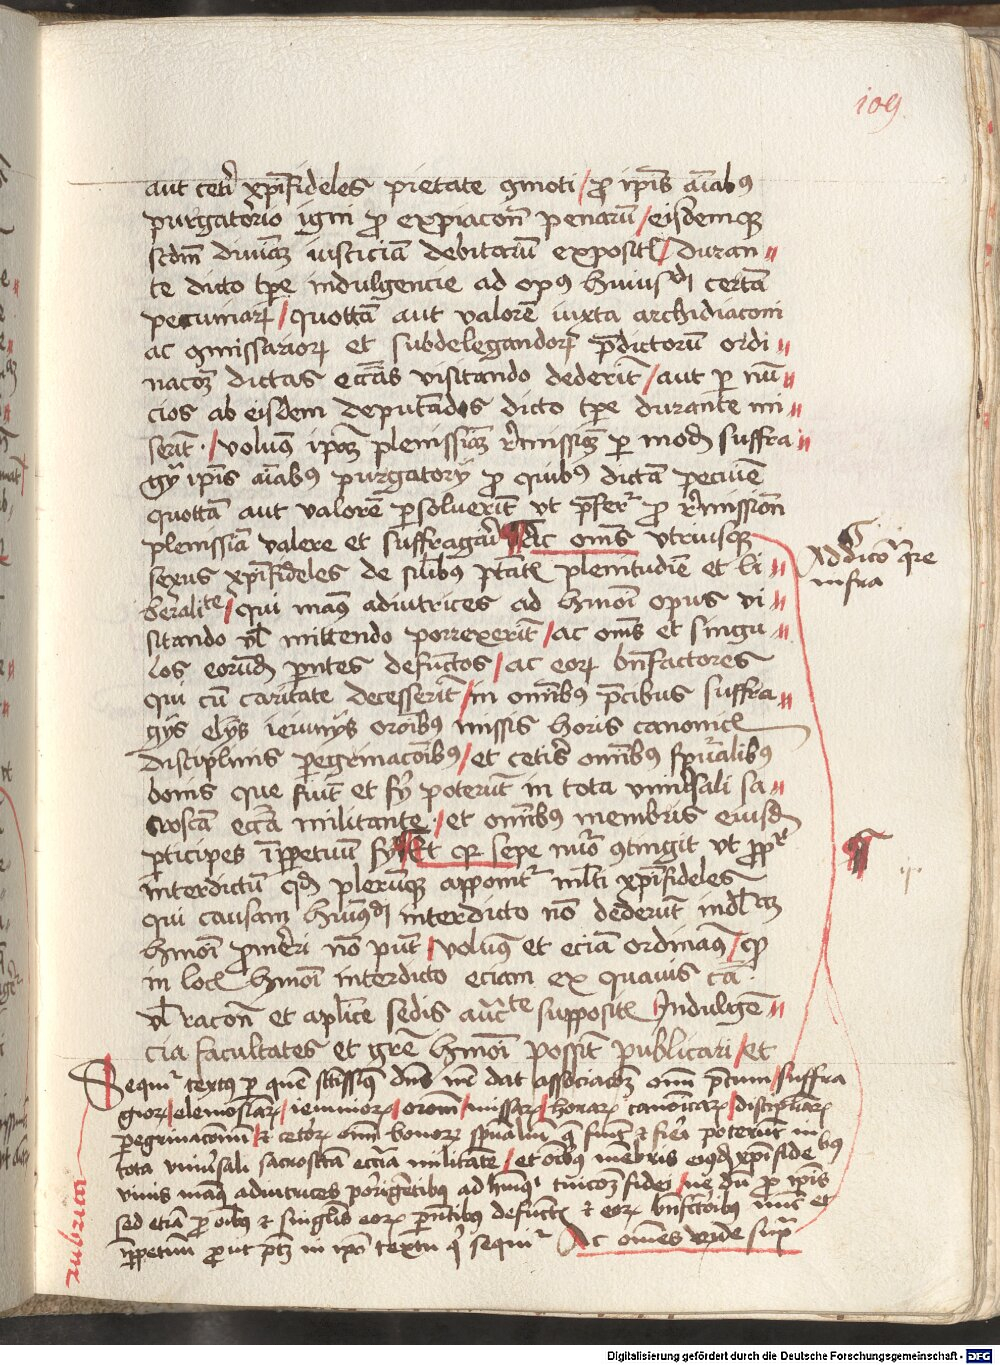 109
aut ceti xpifideles pietate gmoti / pro ipis aiabus
purgatorio igni pro expiacon penaru / eisdemq
scdm diuina iusticia debitaru exposit / duran
te dicto tpe indulgencie ad opus huiusmodi certa
pecuniar / quotta aut valore iuxta archidiaconi
ac gmissarior et subdelegandor pdictoru ordi
nacoz dictas eccias visitando dederit / aut per nu
cios ab eisdem deputados dicto tpe durante mi
serit / volum ipaz plenissiaz rmissioz per modu suffra
gij ipis aiabus purgatorij pro quibus dicta pecunie
quotta aut valore persoluerit vt pfer pro rmission
plenissia valere et suffragari Ac oms vtriusque
sexus xpifideles de silibus ptat plenitudie et li
beralite qui manus adiutrices ad hmoi opus vi
sitando vl mittendo porrexerit / ac oms et singu
los eorud pntes defunctos / ac eor bnfactores
qui cu caritate decesserit / in omibus pcibus suffra
gijs elijs ieiunijs oroibus missis horis canonic
disciplinis peregrinacoibus / et cetis omibus spualibus
bonis que fiut et fij poterut in tota vniusali sa
crosca eccia militante / et omibus membris eiusd
pticipes inppetuu fi Et qr sepe nuo gtingit vt ppt
interdictu qd plerumque apponit mlti xpifideles
qui causam huiusmodi interdicto no dederut indlcia
hmoi pmeri no put / volum et ecia ordinam / q
in loc hmoi interdicto eciam ex quauis ca
vl racon et aplice sedis aucte supposit Indulgen
cia facultates et gre hmoi possit publicari / et
Addico qre
infra
Sequit textus per que sctissimus dns nr dat associacoz oim pctum / suffra
gior / elemosiar / ieiunior / orom / missar / horar canoicar / discipliar
peregrinacom / et cetor oim bonor spualiu q fiut et fieri poterut in
tota vniusali sacroscta eccia militate / et oibus mebris eiusd xpifidelibus
viuis manus adiutrices porigetibus ad huiusmodi tuicoz fidei / ne du pro ipis
sed etia pro oibus et singlis eor parentibus defuct et eor bnfctoribus nuc et
inppetuum prout ptz in ipo textu qi sequit Ac omes vnde supra
rubrica
Digitalisierung gefördert durch die Deutsche Forschungsgemeinschaft - DFG